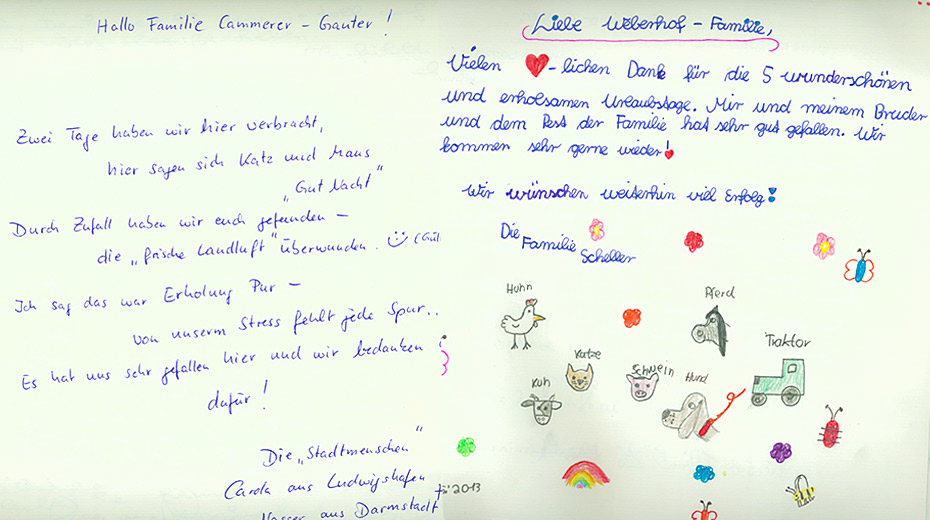 Hallo Familie Cammerer - Ganter!
Zwei Tage haben wir hier verbracht,
hier sagen sich Katz und Maus
"Gut Nacht"
Durch Zufall haben wir euch gefunden -
die "frische Landluft" überwunden. (Gül
Ich sag das war Erholung Pur -
von unserm Stress fehlt jede Spur..
Es hat uns sehr gefallen hier und wir bedanken
dafür!
Die "Stadtmenschen"
Carola aus Ludwigshafen
aus Darmstadt
Liebe Weberhof - Familie,
Vielen ❤-lichen Dank für die 5 wunderschönen
und erholsamen Urlaubstage. Mir und meinem Bruder
und dem Rest der Familie hat sehr gut gefallen. Wir
kommen sehr gerne wieder!
Wir wünschen weiterhin viel Erfolg!
Die
Familie
Scheller
Huhn
Pferd
Traktor
Katze
Schwein
Hund
Kuh
2013